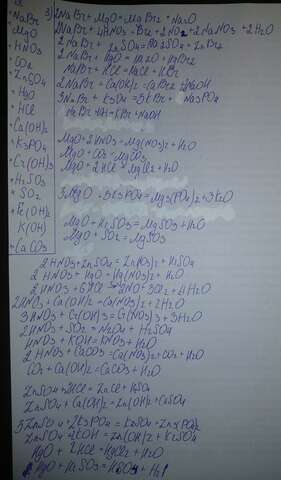 NaBr
MgO
HNO3
CO2
ZnSO4
HgO
HCl
Ca(OH)2
K3PO4
Cr(OH)3
H2SO3
SO2
Fe(OH)2
K(OH)
CaCO3
3) 2NaBr + MgO = MgBr2 + Na2O
2NaBr + 4HNO3 = Br2 + 2NO2 + 2NaNO3 + 2H2O
2NaBr + ZnSO4 = Na2SO4 + ZnBr2
2NaBr + HgO = Na2O + HgBr2
NaBr + HCl = NaCl + HBr
2NaBr + Ca(OH)2 = CaBr2 + 2NaOH
3NaBr + K3PO4 = 3KBr + Na3PO4
NaBr + KOH = KBr + NaOH
MgO + 2HNO3 = Mg(NO3)2 + H2O
MgO + CO2 = MgCO3
MgO + 2HCl = MgCl2 + H2O
3MgO + 2K3PO4 = Mg3(PO4)2 + 3K2O
MgO + H2SO3 = MgSO3 + H2O
MgO + SO2 = MgSO3
2HNO3 + ZnSO4 = Zn(NO3)2 + H2SO4
2HNO3 + HgO = Hg(NO3)2 + H2O
2HNO3 + 6HCl = 2NO + 3Cl2 + 4H2O
2HNO3 + Ca(OH)2 = Ca(NO3)2 + 2H2O
3HNO3 + Cr(OH)3 = Cr(NO3)3 + 3H2O
HNO3 + KOH = KNO3 + H2O
2HNO3 + CaCO3 = Ca(NO3)2 + CO2 + H2O
CO2 + Ca(OH)2 = CaCO3 + H2O
ZnSO4 + Ca(OH)2 = Zn(OH)2 + CaSO4
ZnSO4 + 2KOH = Zn(OH)2 + K2SO4
HgO + 2HCl = HgCl2 + H2O